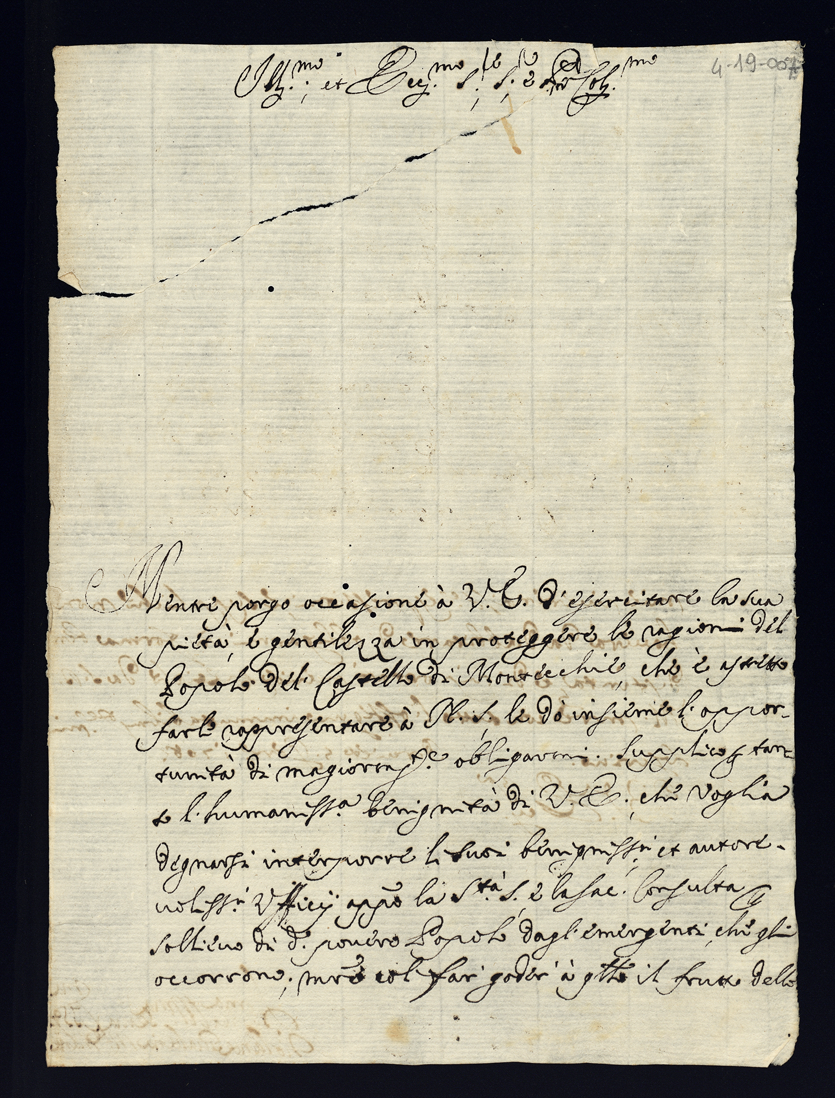 Ill.mo et Ecc.mo S.re S.re e Pr̃on Col.mo
4-19-007
Mentre porgo occasione à V. E. d'esercitare la sua
pietà, e gentilezza in proteggere le ragioni del
Popolo del Castello di Montecchie, che è astretto
farle rappresentare à N. S. le dò insieme l'oppor-
tunità di magiorm.te obligarmi. Supplico p tan-
to l'humaniss.a benignità di V. E. che voglia
degnarsi interporre li suoi benigniss.i et autore-
voliss.i Vfficij app̃o la S.tà S. e la Sac. Consulta p
sollievo di d. povero Popolo dagl'emergenti, che gli
occorrono, mr̃e col far goder à q̃llo il frutto dello